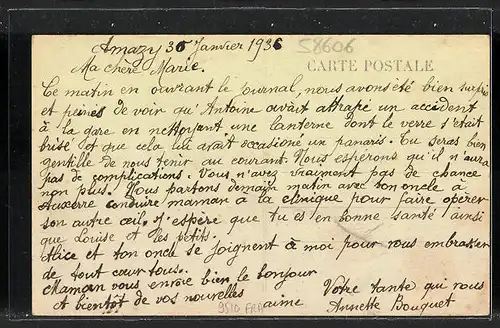 Amazy 30 Janvier 1936
58606
CARTE POSTALE
Ma chère Marie.
Ce matin en ouvrant le journal, nous avons été bien surpris
et peinés de voir qu'Antoine avait attrapé un accident
à la gare en nettoyant une lanterne dont le verre s'était
brisé et que cela lui avait occasioné un panaris. Tu seras bien
gentille de nous tenir au courant. Nous esperons qu'il n'aura
pas de complications. Vous n'avez vraiment pas de chance
non plus. Nous partons demain matin avec ton oncle à
Auxerre conduire maman à la clinique pour faire opérer
son autre œil. J'espère que tu es en bonne santé ainsi
que Louise et les petits.
Alice et ton oncle se joignent à moi pour vous embrasser
de tout cœur tous.
Maman vous envoie bien le bonjour
et bientôt de vos nouvelles
Votre tante qui vous
aime
Annette Bouquet
9510 FRA